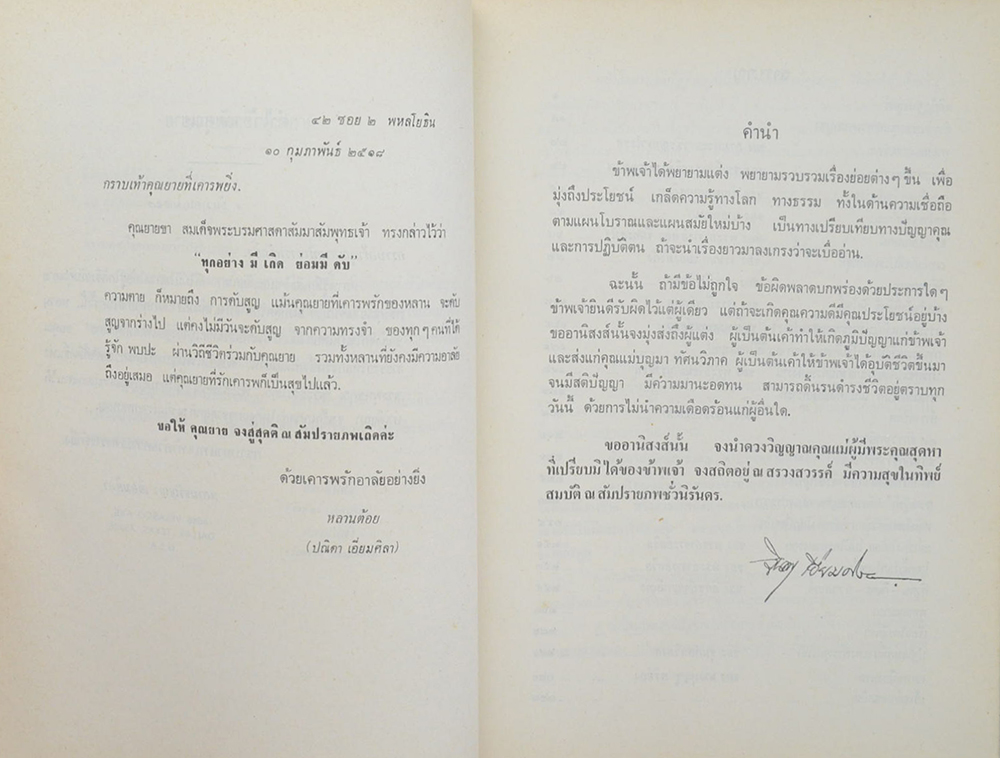 ๔๒ ซอย ๒ พหลโยธิน
๑๐ กุมภาพันธ์ ๒๕๑๘
กราบเท้าคุณยายที่เคารพยิ่ง.
คุณยายขา สมเด็จพระบรมศาสดาสัมมาสัมพุทธเจ้า ทรงกล่าวไว้ว่า
"ทุกอย่าง มี เกิด ย่อมมี ดับ"
ความตาย ก็หมายถึง การดับสูญ แม้นคุณยายที่เคารพรักของหลาน จะดับ
สูญจากร่างไป แต่คงไม่มีวันจะดับสูญ จากความทรงจำ ของทุกๆคนที่ได้
รู้จัก พบปะ ผ่านวิถีชีวิตร่วมกับคุณยาย รวมทั้งหลานที่ยังคงมีความอาลัย
ถึงอยู่เสมอ แต่คุณยายที่รักเคารพก็เป็นสุขไปแล้ว.
ขอให้ คุณยาย จงสู่สุคติ ณ สัมปรายภพเถิดค่ะ
ด้วยเคารพรักอาลัยอย่างยิ่ง
หลานต้อย
(ปณิดา เอี่ยมศิลา)
คำนำ
ข้าพเจ้าได้พยายามแต่ง พยายามรวบรวมเรื่องย่อยต่างๆ ขึ้น เพื่อ
มุ่งถึงประโยชน์ เกล็ดความรู้ทางโลก ทางธรรม ทั้งในด้านความเชื่อถือ
ตามแผนโบราณและแผนสมัยใหม่บ้าง เป็นทางเปรียบเทียบทางปัญญาคุณ
และการปฏิบัติตน ถ้าจะนำเรื่องยาวมาลงเกรงว่าจะเบื่ออ่าน.
ฉะนั้น ถ้ามีข้อไม่ถูกใจ ข้อผิดพลาดบกพร่องด้วยประการใดๆ
ข้าพเจ้ายินดีรับผิดไว้แต่ผู้เดียว แต่ถ้าจะเกิดคุณความดีมีคุณประโยชน์อยู่บ้าง
ขออานิสงส์นั้นจงมุ่งส่งถึงผู้แต่ง ผู้เป็นต้นเค้าทำให้เกิดภูมิปัญญาแก่ข้าพเจ้า
และส่งแก่คุณแม่บุญมา ทัศนวิภาค ผู้เป็นต้นเค้าให้ข้าพเจ้าได้อุบัติชีวิตขึ้นมา
จนมีสติปัญญา มีความมานะอดทน สามารถดิ้นรนดำรงชีวิตอยู่ตราบทุก
วันนี้ ด้วยการไม่นำความเดือดร้อนแก่ผู้อื่นใด.
ขออานิสงส์นั้น จงนำดวงวิญญาณคุณแม่ผู้มีพระคุณสุดหา
ที่เปรียบมิได้ของข้าพเจ้า จงสถิตอยู่ ณ สรวงสวรรค์ มีความสุขในทิพย์
สมบัติ ณ สัมปรายภพชั่วนิรันดร.